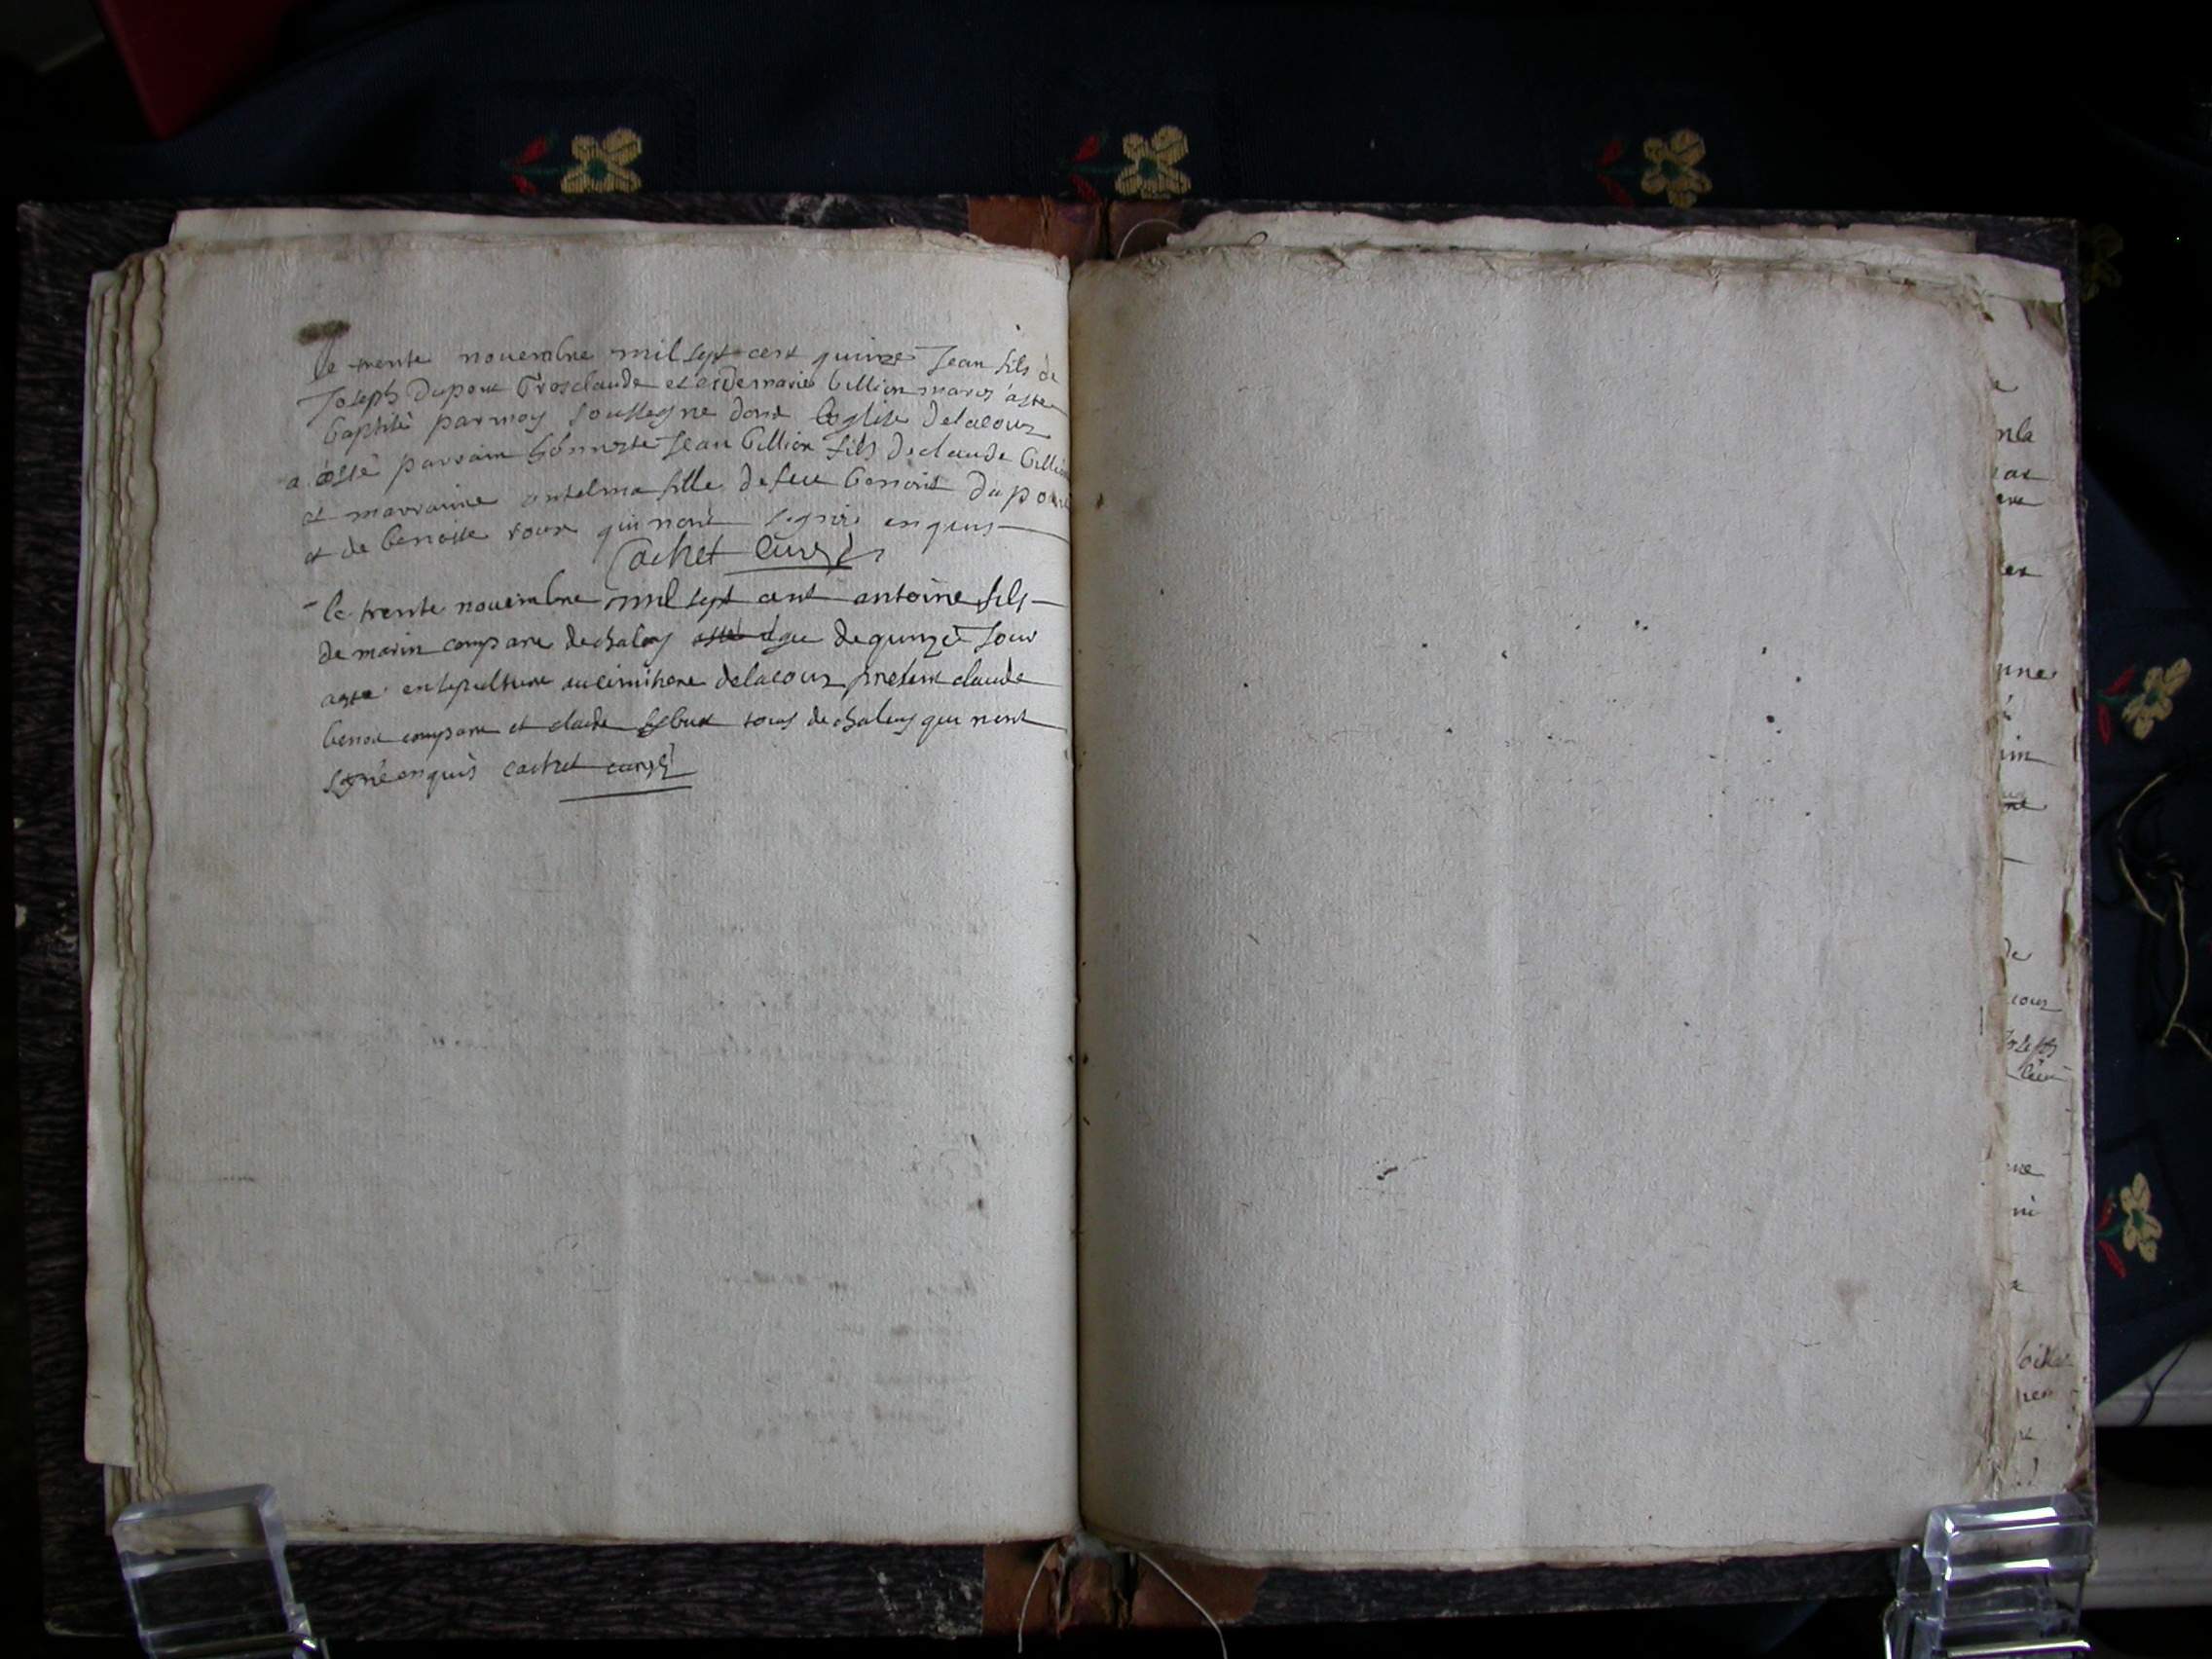 le trente nouembre mil sept cent quinze Jean fils de
Joseph Dupont Grosclaude et de marie billion maries a este
baptisé par moy soussigne dans leglise delacour
a esté parrain honneste Jean billion fils de claude billion
et marraine antelma fille de feu benoist dupont
et de benoite roux qui nont signé enquis
Cachet curé
le trente nouembre mil sept cent antoine fils
de marin compare de chaley agee de quinze jour
a este ensepulture au cimitiere delacour present claude
benoit compare et claude tous de chaley qui nont
signé enquis cachet curé